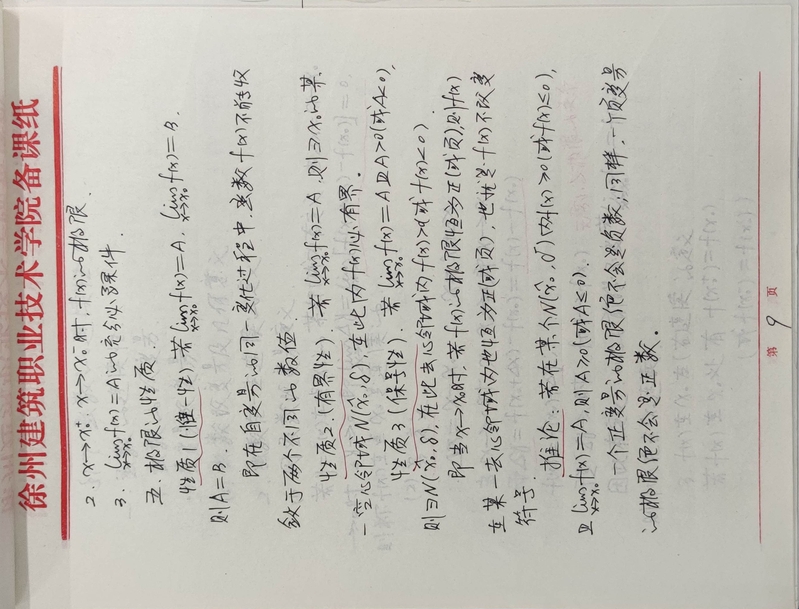 徐州建筑职业技术学院备课纸
2. x→x₀⁺, x→x₀⁻时, f(x)的极限.
3. lim_{x→x₀} f(x)=A的充分必要条件.
五. 极限的性质
性质1 (唯一性) 若 lim_{x→x₀} f(x)=A, lim_{x→x₀} f(x)=B.
则A=B.
即在自变量的同一变化过程中, 函数f(x)不能收
敛于两个不同的数值
性质2. (有界性). 若 lim_{x→x₀} f(x)=A, 则∃x₀的某
一空心邻域N(x̂₀,δ), 在此内f(x)必有界.
性质3 (保号性). 若 lim_{x→x₀} f(x)=A且A>0(或A<0),
则∃N(x̂₀,δ), 在此去心邻域内f(x)>0(或f(x)<0).
即当x→x₀时, 若f(x)的极限恒为正(或负), 则f(x)
在某一去心邻域内也恒为正(或负), 也就是f(x)不改变
符号.
推论: 若在某个N(x̂₀,δ)内f(x)≥0(或f(x)≤0),
且 lim_{x→x₀} f(x)=A, 则A≥0(或A≤0).
因一个正变量的极限绝不会是负数, 同样, 一个负变量
的极限绝不会是正数.
第 9 页